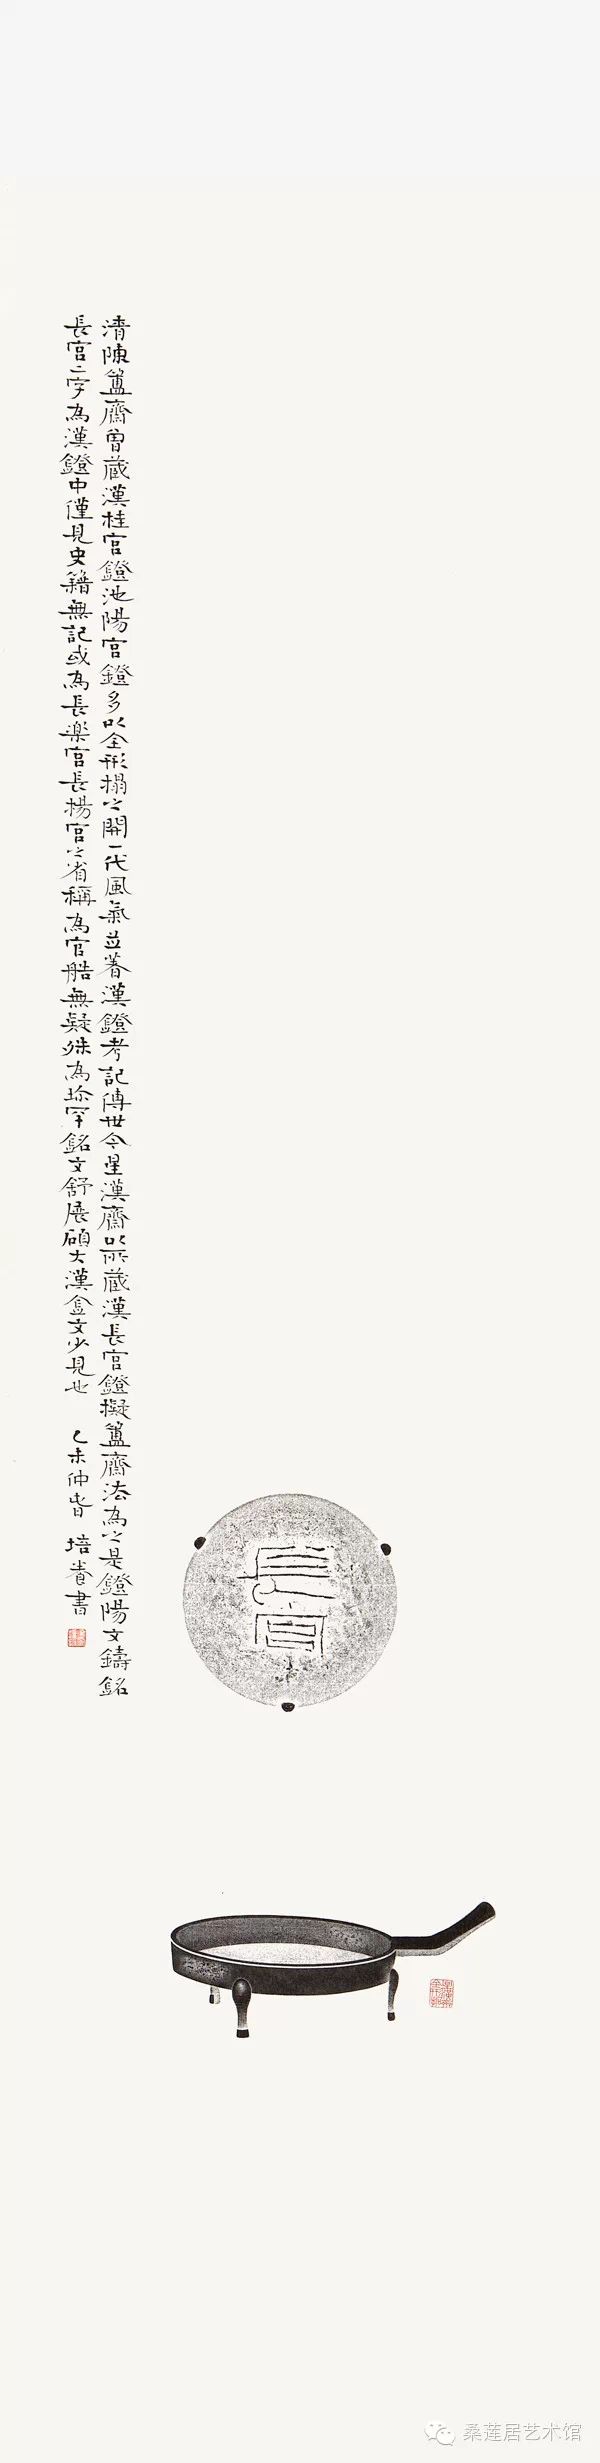 清陳簠齋曾藏漢桂宮鐙池陽宮鐙多以全形搨之開一代風氣並著漢鐙考記傳世今星漢齋以所藏漢長宮鐙擬簠齋法為之是鐙陽文鑄銘
長宮二字為漢鐙中僅見史籍無記或為長樂宮長楊宮之省稱為官造無疑殊為珍罕銘文舒展碩大漢金文少見也 乙未仲春 培養書
長宮
桑莲居艺术馆